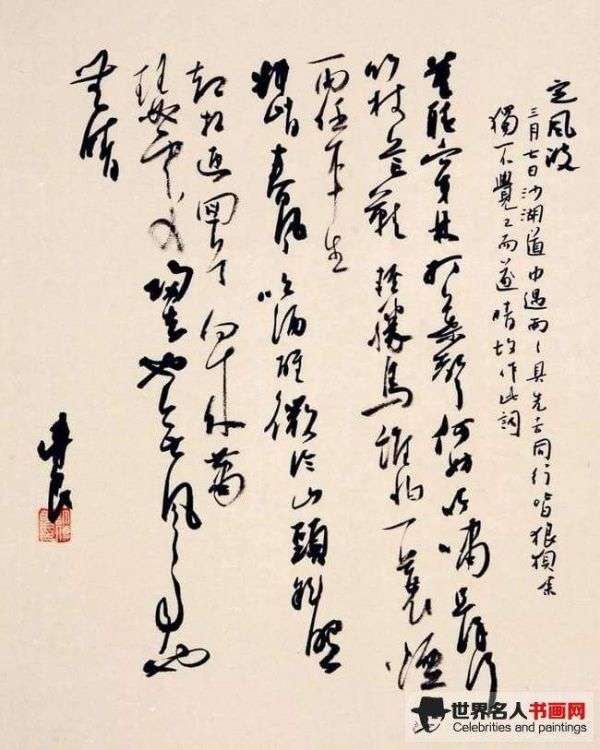 定風波
三月七日沙湖道中遇雨々具先去同行皆狼狽余
獨不覺已而遂晴故作此詞
莫聽穿林打葉聲何妨吟嘯且徐行
竹杖芒鞋輕勝馬誰怕一蓑煙
雨任平生
料峭春風吹酒醒微冷山頭斜照
却相迎回首向來蕭
瑟處歸去也無風雨也
無晴
世界名人书画网
Celebrities and paintings